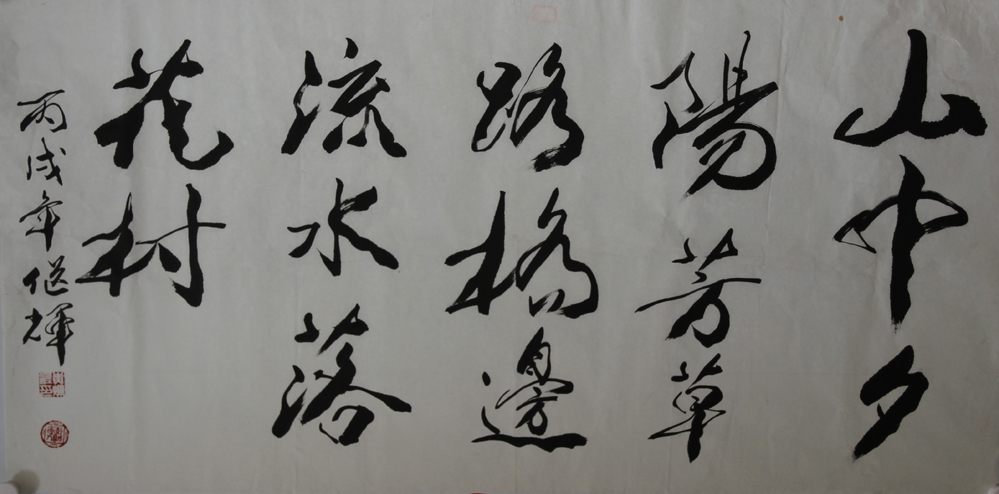 山中夕
陽芳草
路橋邊
流水落
花村
丙戌年继輝